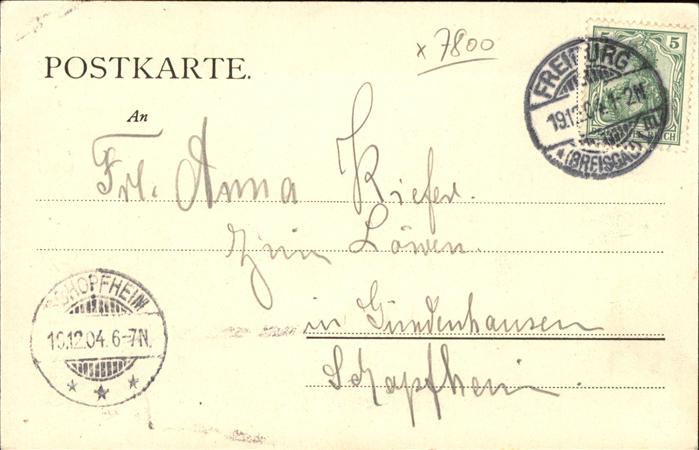 x 7800
POSTKARTE.
An
5 5
FREIBURG
19.12.04.1-2N.
* (BREISGAU)
Frl. Anna Kiefer.
zum Löwen.
in Gündenhausen
Schopfheim
SCHOPFHEIM
19.12.04.6-7N.
* * *